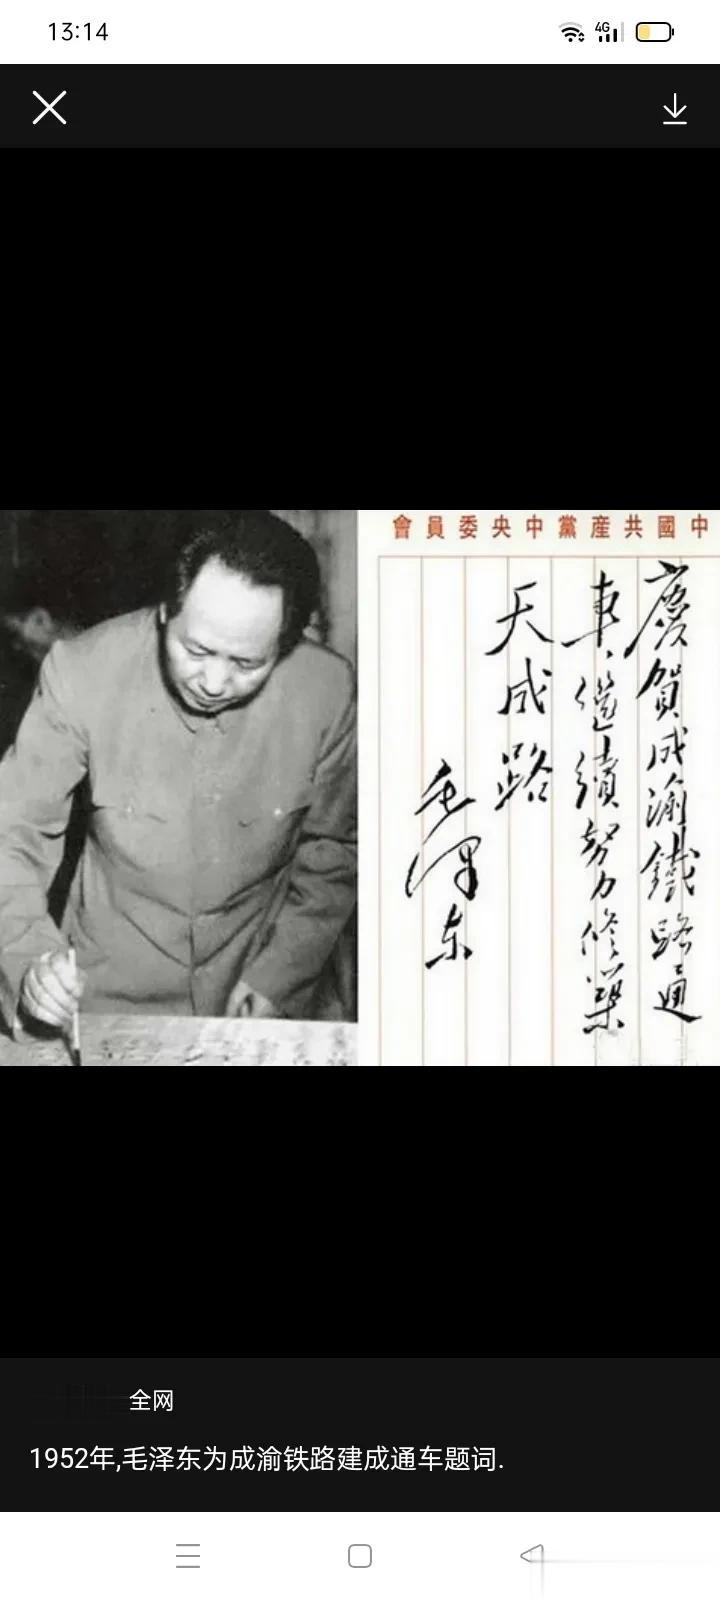 13:14
4G
中國共産黨中央委員會
慶賀成渝鐵路通
車、繼續努力修築
天成路
毛澤东
全网
1952年,毛泽东为成渝铁路建成通车题词.